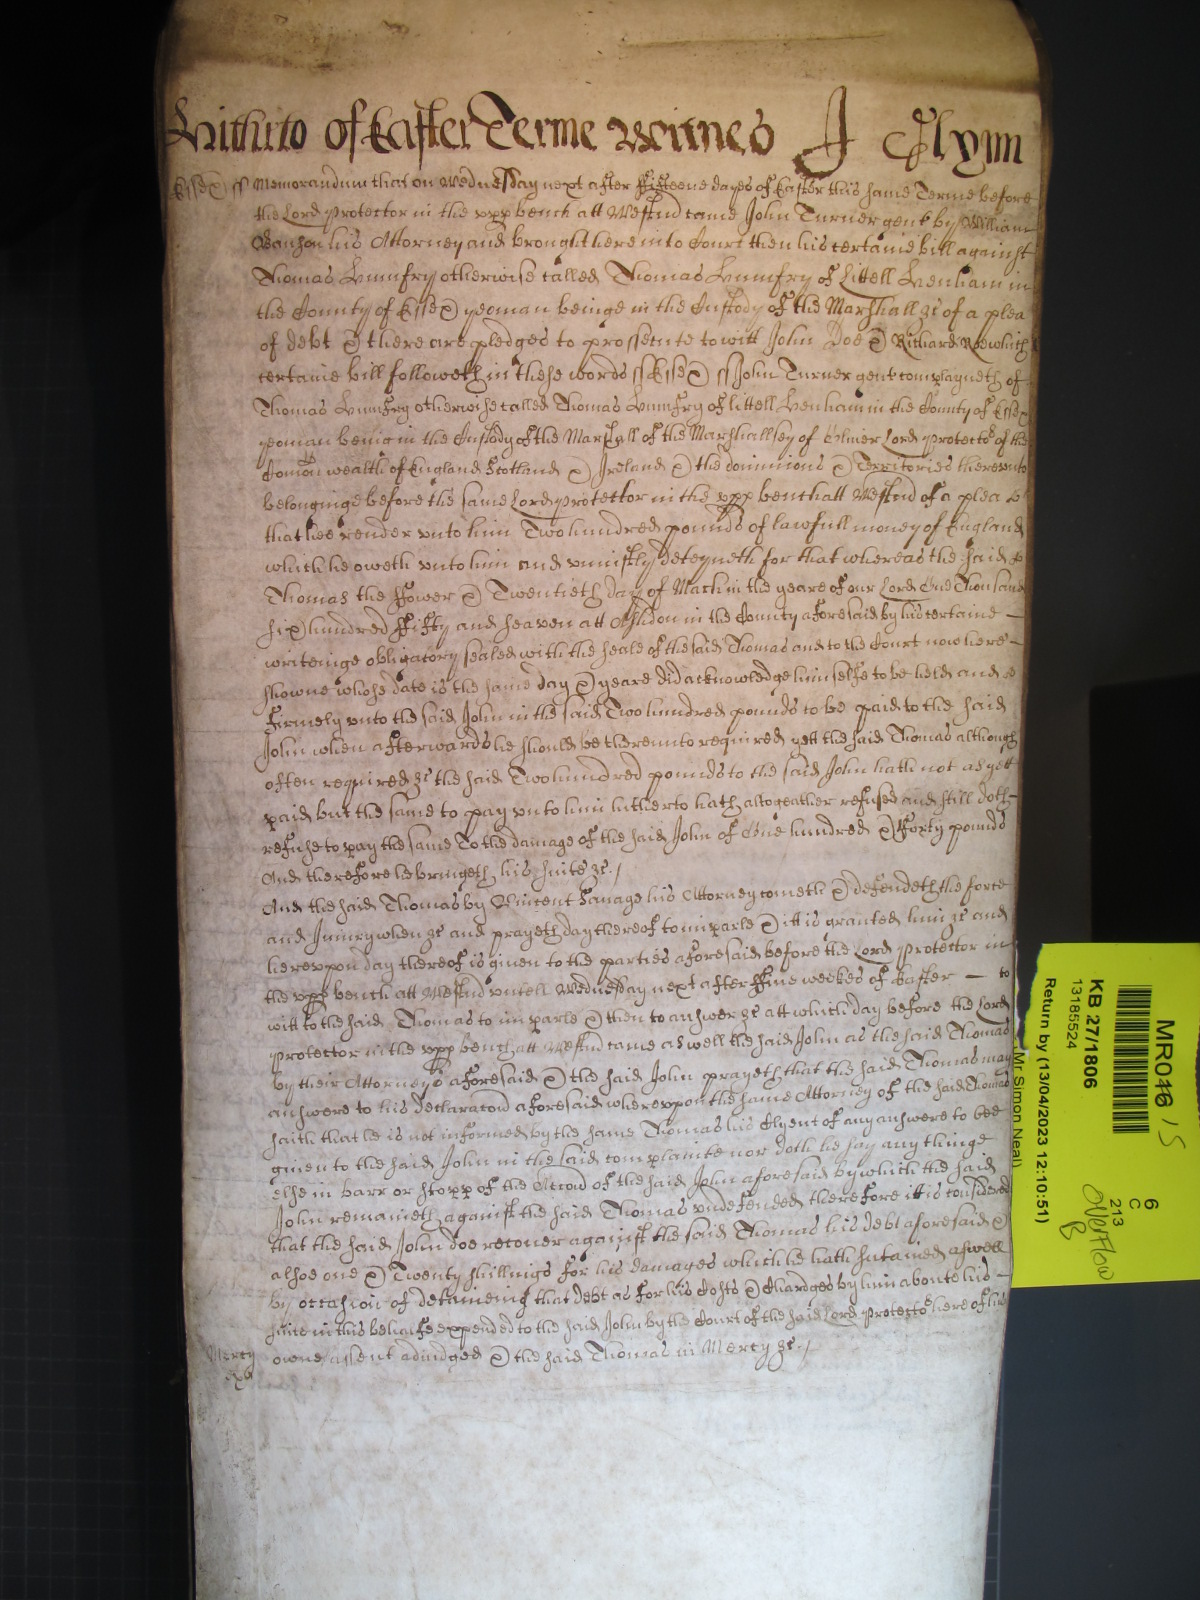 Hitherto of Easter Terme Witnes J Glynn
Essex ss Memorandum that on Wednesday next after ffifteene dayes of Easter this same Terme before
the Lord Protector in the upp bench att Westmr came John Turner gent by William
his Attorney and brought here into Court then his certaine bill against
Thomas Humfry otherwise called Thomas Humfry of Littell Henham in
the County of Essex yeoman beinge in the Custody of the Marshall &c of a plea
of debt & there are pledges to prossecute to witt John Doe & Richard Roe which
certaine bill followeth in these words ss Essex ss John Turner gent complayneth of
Thomas Humfry otherwise called Thomas Humfry of littell Henham in the County of Essex
yeoman being in the Custody of the Marshall of the Marshallsey of Oliver Lord Protector of the
Comon wealth of England Scotland & Ireland & the dominions & Territories thereunto
belonginge before the same Lord Protector in the upp bench att Westmr of a plea
that hee render unto him Two hundred pounds of lawfull money of England
which he oweth unto him and uniustly deteyneth for that whereas the said
Thomas the ffower & Twentieth day of March in the yeare of our Lord One Thousand
six hundred ffifty and seaven att Ashdon in the County aforesaid by his certaine
writeinge obligatory sealed with the seale of the said Thomas and to the Court now here
showne whose date is the same day & yeare did acknowledge himselfe to be held and
firmely unto the said John in the said Two hundred pounds to be paid to the said
John when afterwards he should be thereunto required yett the said Thomas although
often required &c the said Two hundred pounds to the said John hath not as yett
paid but the same to pay unto him hitherto hath altogeather refused and still doth
refuse to pay the same To the damage of the said John of One hundred & fforty pounds
And therefore he bringeth his suite &c./
And the said Thomas by Vincent Savage his Attorney cometh & defendeth the force
and Iniury when &c and prayeth day thereof to imparle & itt is granted him &c and
hereupon day thereof is given to the parties aforesaid before the Lord Protector in
the upp bench att Westmr untill Wednesday next after ffive weekes of Easter — to
witt to the said Thomas to imparle & then to answer &c att which day before the Lord
Protector in the upp bench att Westmr came as well the said John as the said Thomas
by their Attorneys aforesaid & the said John prayeth that the said Thomas may
answere to his declaracon aforesaid whereupon the same Attorney of the said Thomas
saith that he is not informed by the same Thomas his Clyent of any answere to bee
given to the said John in the said complainte nor doth he say any thinge
else in barr or stopp of the Accon of the said John aforesaid by which the said
John remaineth against the said Thomas undefended therefore itt is considered
that the said John doe recover against the said Thomas his debt aforesaid &
alsoe one & Twenty shillings for his damages which he hath sustained aswell
by occasion of deteineing that debt as for his Costs & Chardges by him aboute his
suite in this behalfe expended to the said John by the Court of the said Lord Protector here of his
Mercy owne assent adiudged & the said Thomas in Mercy &c./
MR046 15
KB 27/1806
13185524
Return by (13/04/2023 12:10:51)
Mr Simon Neal)
6
C
213
Overflow
B